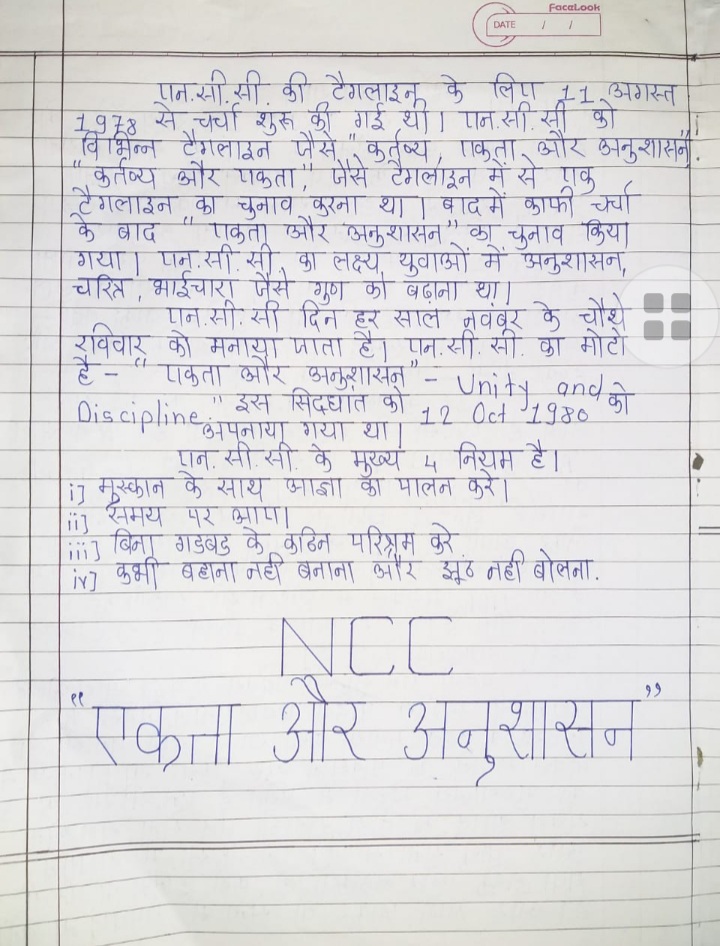 FaceLook
DATE / /
एन.सी.सी. की टैगलाइन के लिए 11 अगस्त
1978 से चर्चा शुरू की गई थी। एन.सी.सी को
विभिन्न टैगलाइन जैसे "कर्तव्य, एकता और अनुशासन"
"कर्तव्य और एकता", जैसे टैगलाइन में से एक
टैगलाइन का चुनाव करना था। बाद में काफी चर्चा
के बाद "एकता और अनुशासन" का चुनाव किया
गया। एन.सी.सी का लक्ष्य युवाओं में अनुशासन,
चरित्र, भाईचारा जैसे गुण को बढ़ाना था।
एन.सी.सी दिन हर साल नवंबर के चौथे
रविवार को मनाया जाता है। एन.सी.सी. का मोटो
है - "एकता और अनुशासन" - Unity and
Discipline." इस सिद्धांत को 12 Oct 1980 को
अपनाया गया था।
एन.सी.सी. के मुख्य 4 नियम है।
i] मुस्कान के साथ आज्ञा का पालन करे।
ii] समय पर आए।
iii] बिना गडबड के कठिन परिश्रम करे
iv] कभी बहाना नही बनाना और झूठ नही बोलना.
NCC
"एकता और अनुशासन"